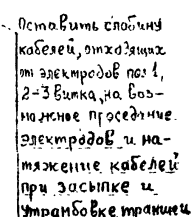 Оставить слабину
кабелей, отходящих
от электродов поз 1,
2-3 витка, на воз-
можное проседание
электродов и на-
тяжение кабелей
при засыпке и
утрамбовке траншеи